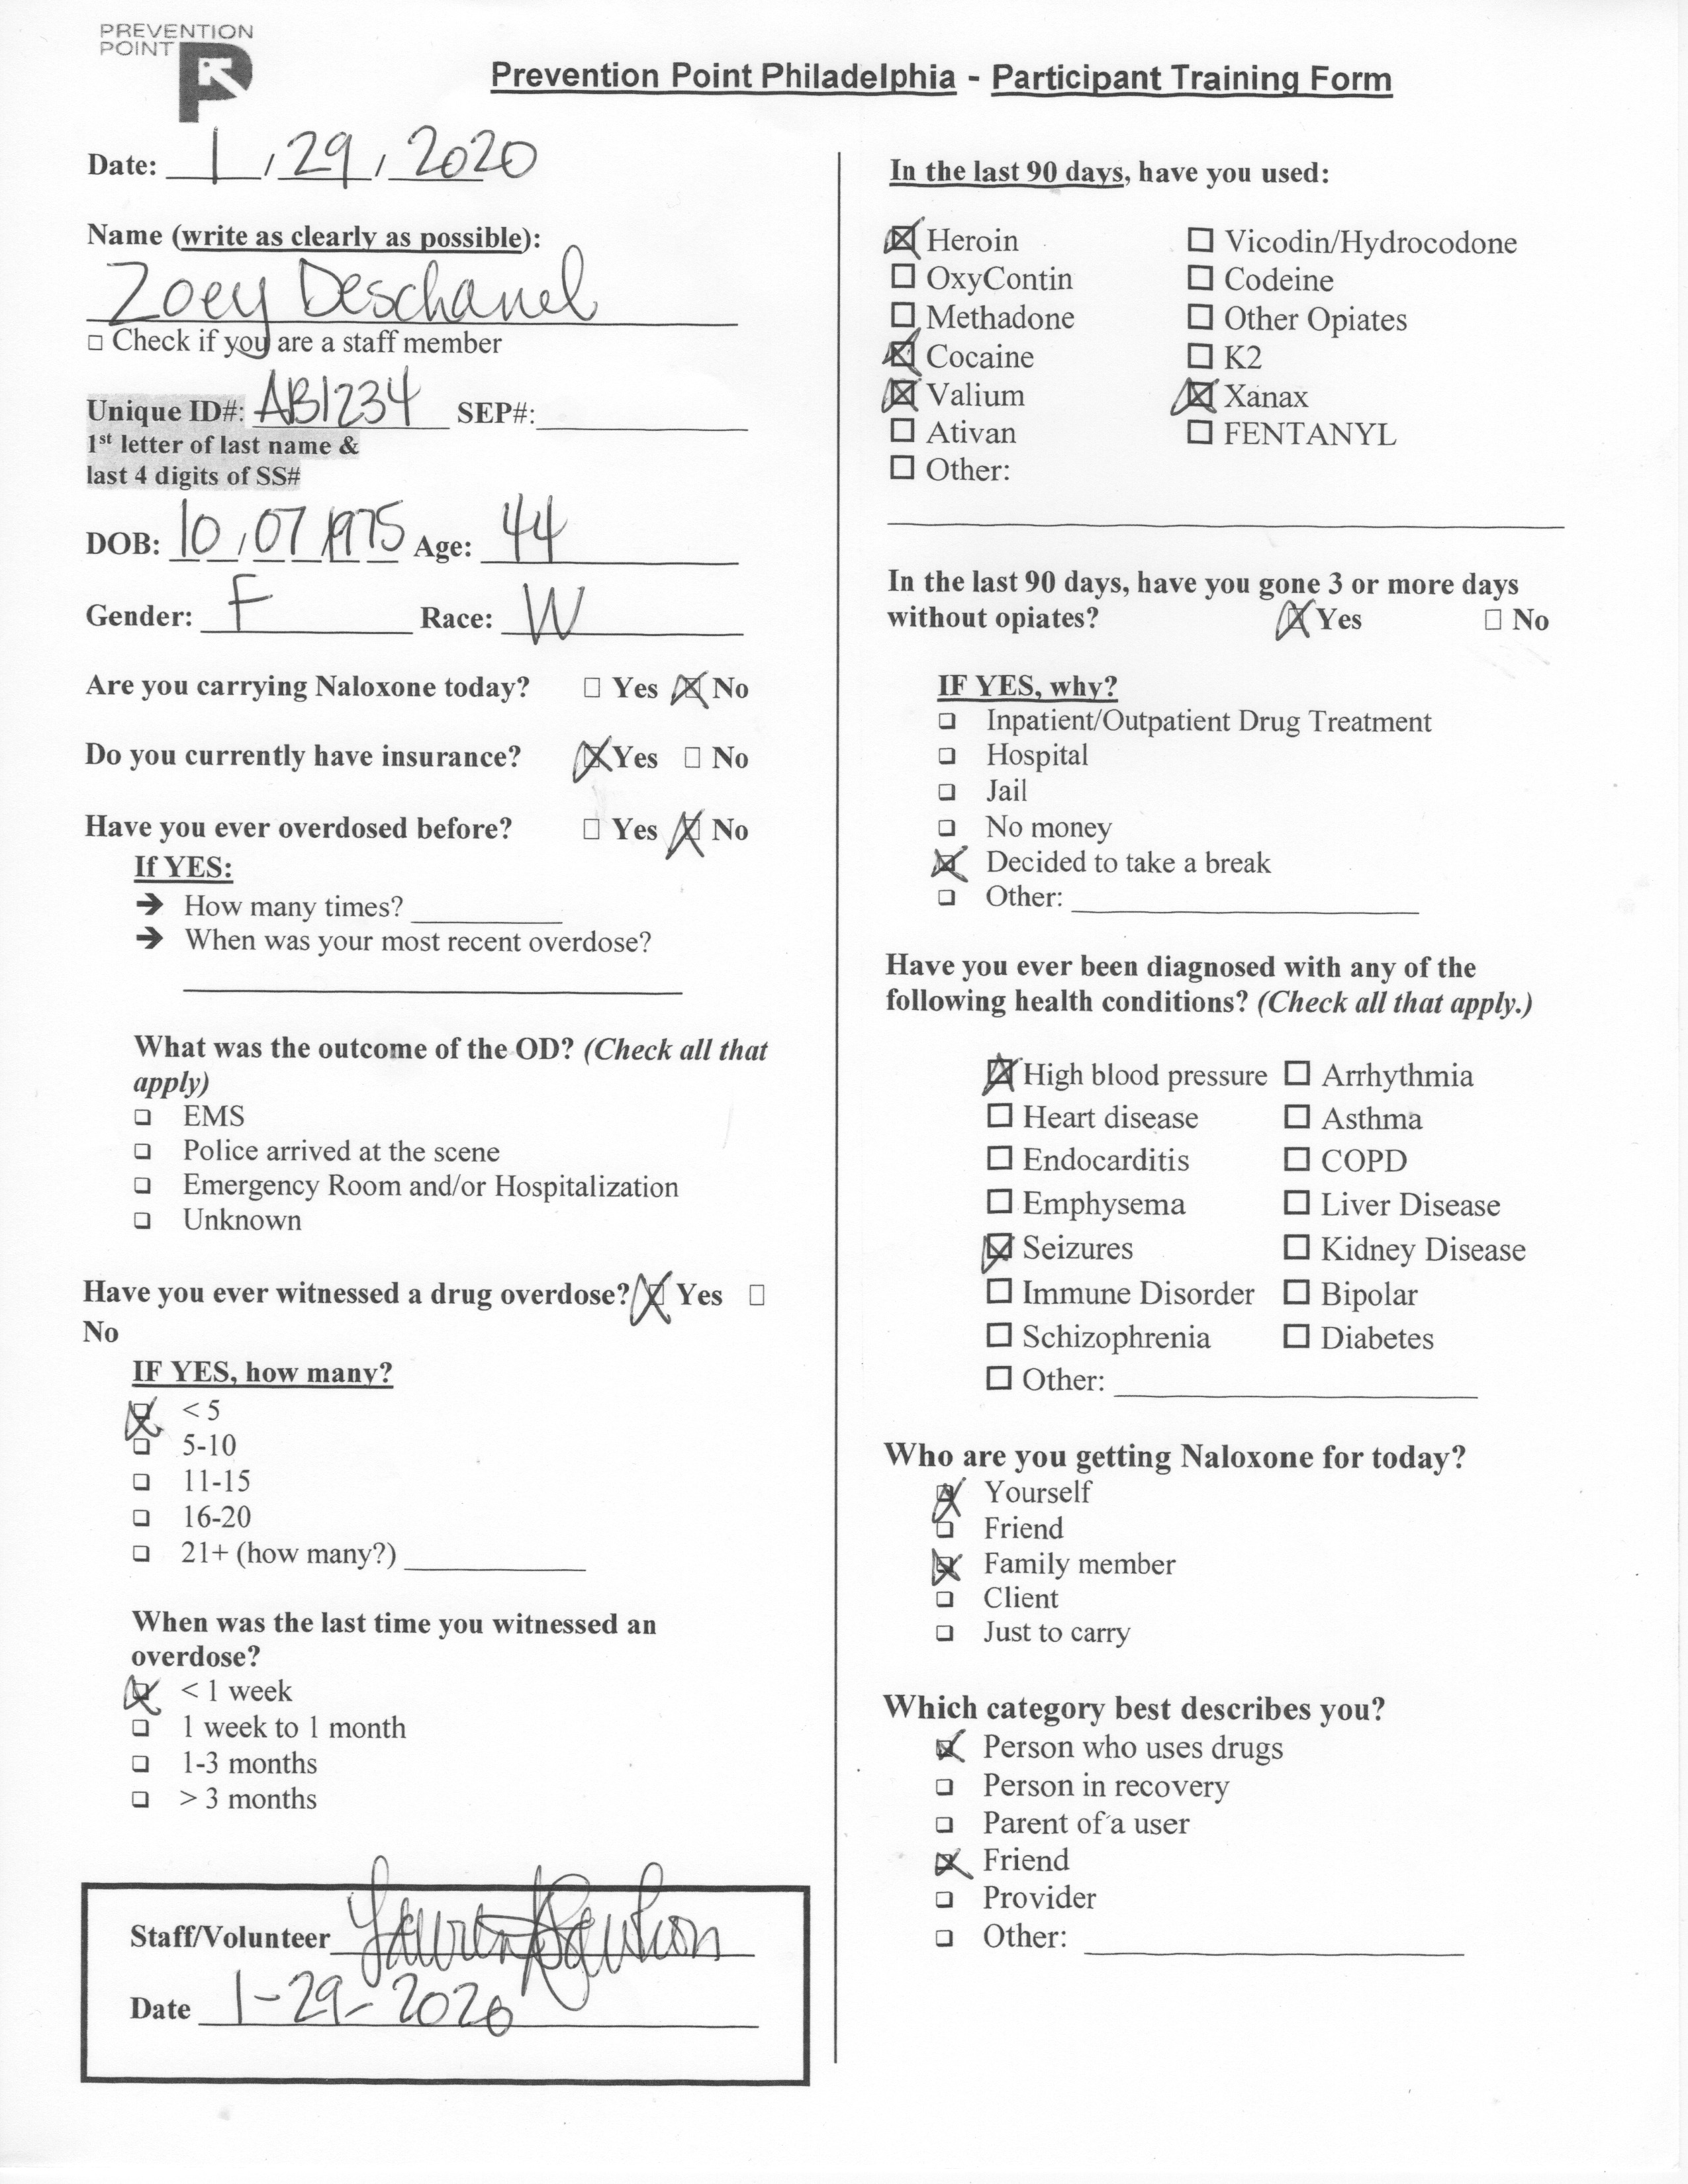 PREVENTION
POINT
Prevention Point Philadelphia - Participant Training Form
Date: 1 / 29 / 2020
Name (write as clearly as possible):
Zoey Deschanel
□ Check if you are a staff member
Unique ID#: AB1234 SEP#:
1st letter of last name &
last 4 digits of SS#
DOB: 10 / 07 / 1975 Age: 44
Gender: F Race: W
Are you carrying Naloxone today? □ Yes ☒ No
Do you currently have insurance? ☒ Yes □ No
Have you ever overdosed before? □ Yes ☒ No
If YES:
➔ How many times?
➔ When was your most recent overdose?
What was the outcome of the OD? (Check all that
apply)
□ EMS
□ Police arrived at the scene
□ Emergency Room and/or Hospitalization
□ Unknown
Have you ever witnessed a drug overdose? ☒ Yes □
No
IF YES, how many?
☒ < 5
□ 5-10
□ 11-15
□ 16-20
□ 21+ (how many?)
When was the last time you witnessed an
overdose?
☒ < 1 week
□ 1 week to 1 month
□ 1-3 months
□ > 3 months
Staff/Volunteer
Date 1-29-2020
In the last 90 days, have you used:
☒ Heroin □ Vicodin/Hydrocodone
□ OxyContin □ Codeine
□ Methadone □ Other Opiates
☒ Cocaine □ K2
☒ Valium ☒ Xanax
□ Ativan □ FENTANYL
□ Other:
In the last 90 days, have you gone 3 or more days
without opiates? ☒ Yes □ No
IF YES, why?
□ Inpatient/Outpatient Drug Treatment
□ Hospital
□ Jail
□ No money
☒ Decided to take a break
□ Other:
Have you ever been diagnosed with any of the
following health conditions? (Check all that apply.)
☒ High blood pressure □ Arrhythmia
□ Heart disease □ Asthma
□ Endocarditis □ COPD
□ Emphysema □ Liver Disease
☒ Seizures □ Kidney Disease
□ Immune Disorder □ Bipolar
□ Schizophrenia □ Diabetes
□ Other:
Who are you getting Naloxone for today?
☒ Yourself
□ Friend
☒ Family member
□ Client
□ Just to carry
Which category best describes you?
☒ Person who uses drugs
□ Person in recovery
□ Parent of a user
☒ Friend
□ Provider
□ Other: